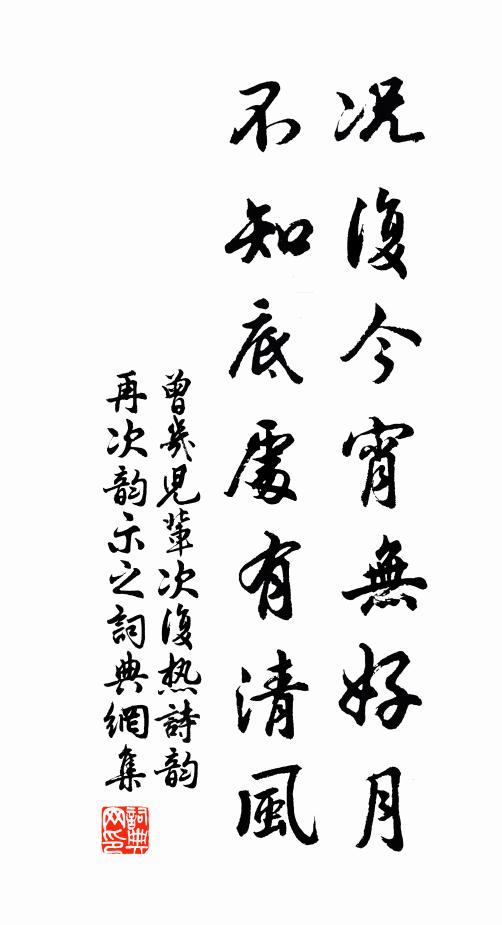 况復今宵無好月
不知底處有清風
曾幾兒輩次復热詩韵
再次韵示之詞典網集
詞典
网印